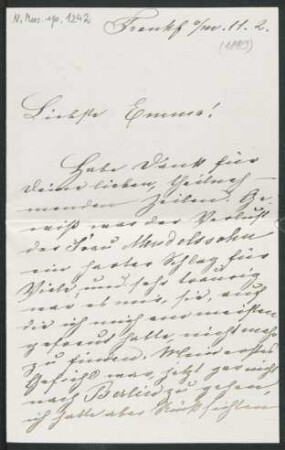 N. Mus. ep. 1242
Frankf a/m. 11. 2.
(1889)
Liebste Emma!
Habe Dank für
Deine lieben, theilneh-
menden Zeilen. Ge-
wiß war der Verlust
der Frau Mendelssohn
ein harter Schlag für
Viele, und sehr traurig
war es mir, sie, auf
die ich mich am meisten
gefreut hatte, nicht mehr
zu finden. Mein erstes
Gefühl war, jetzt gar nicht
nach Berlin zu gehen,
ich hatte aber Rücksichten